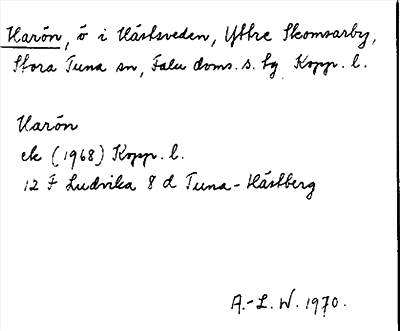 Harön, ö i Hästsveden, Yttre Skomsarby,
Stora Tuna sn, Falu doms. s. tg Kopp. l.
Harön
ek (1968) Kopp. l.
12 F Ludvika 8 d Tuna-Hästberg
A.-L. W. 1970.